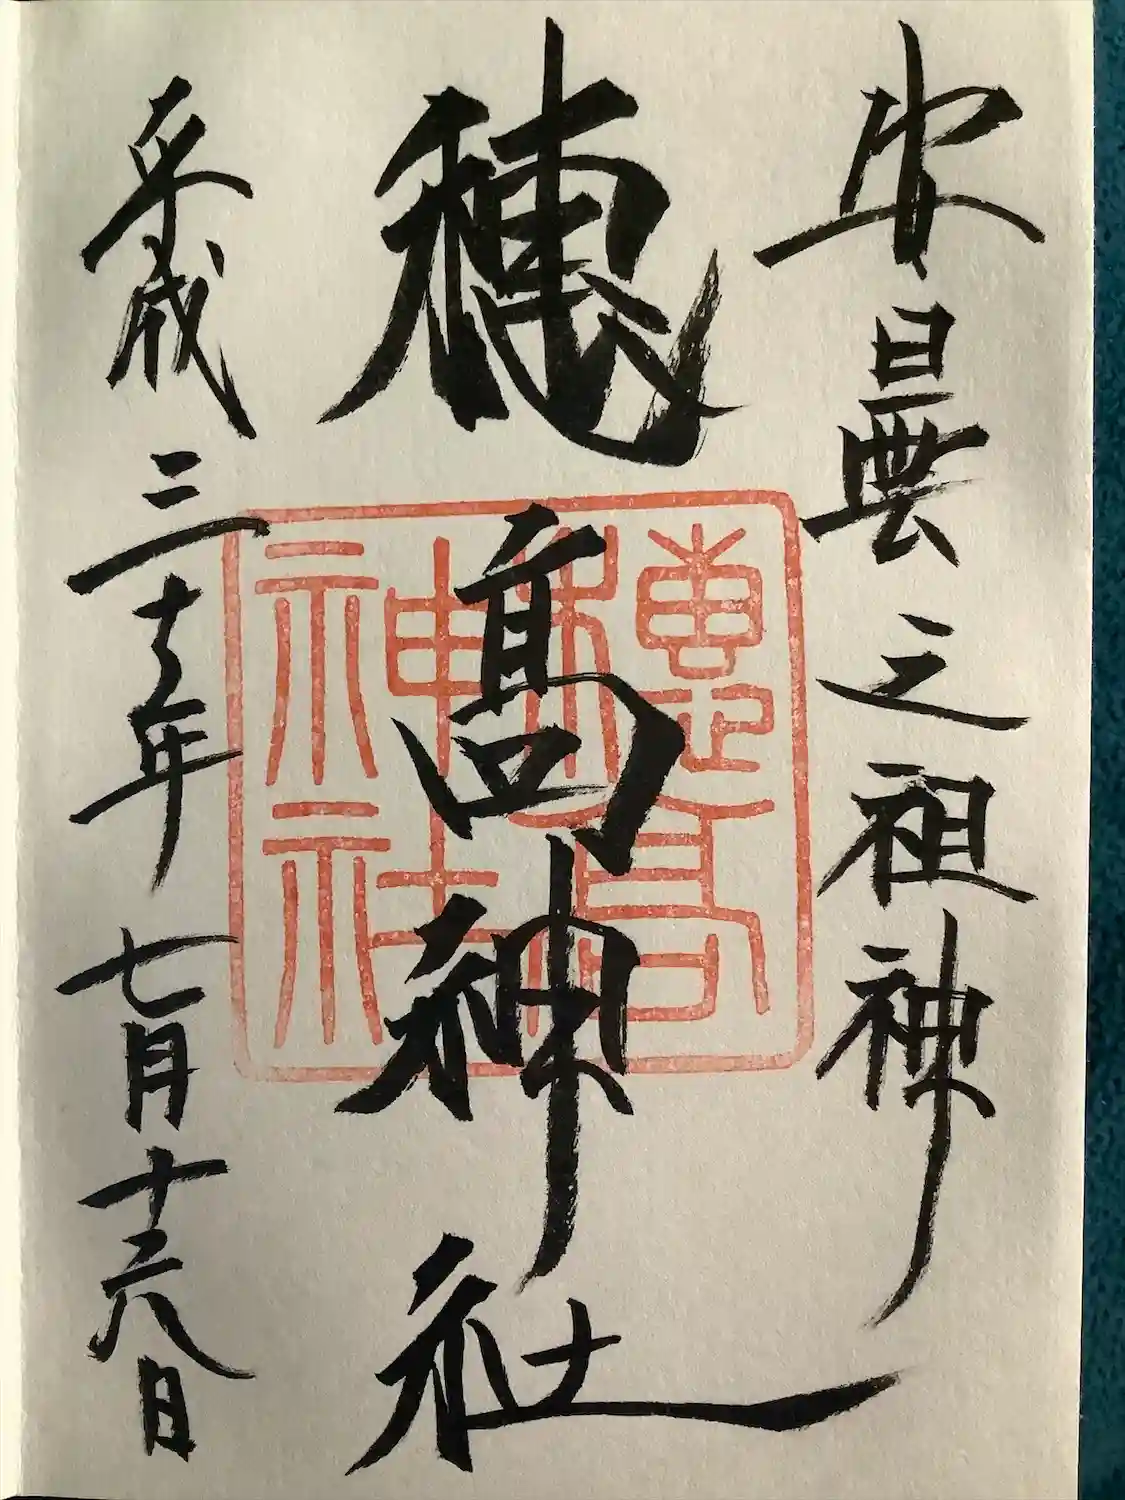 安曇之祖神
穂髙神社
穂髙神社
平成三十年七月十六日